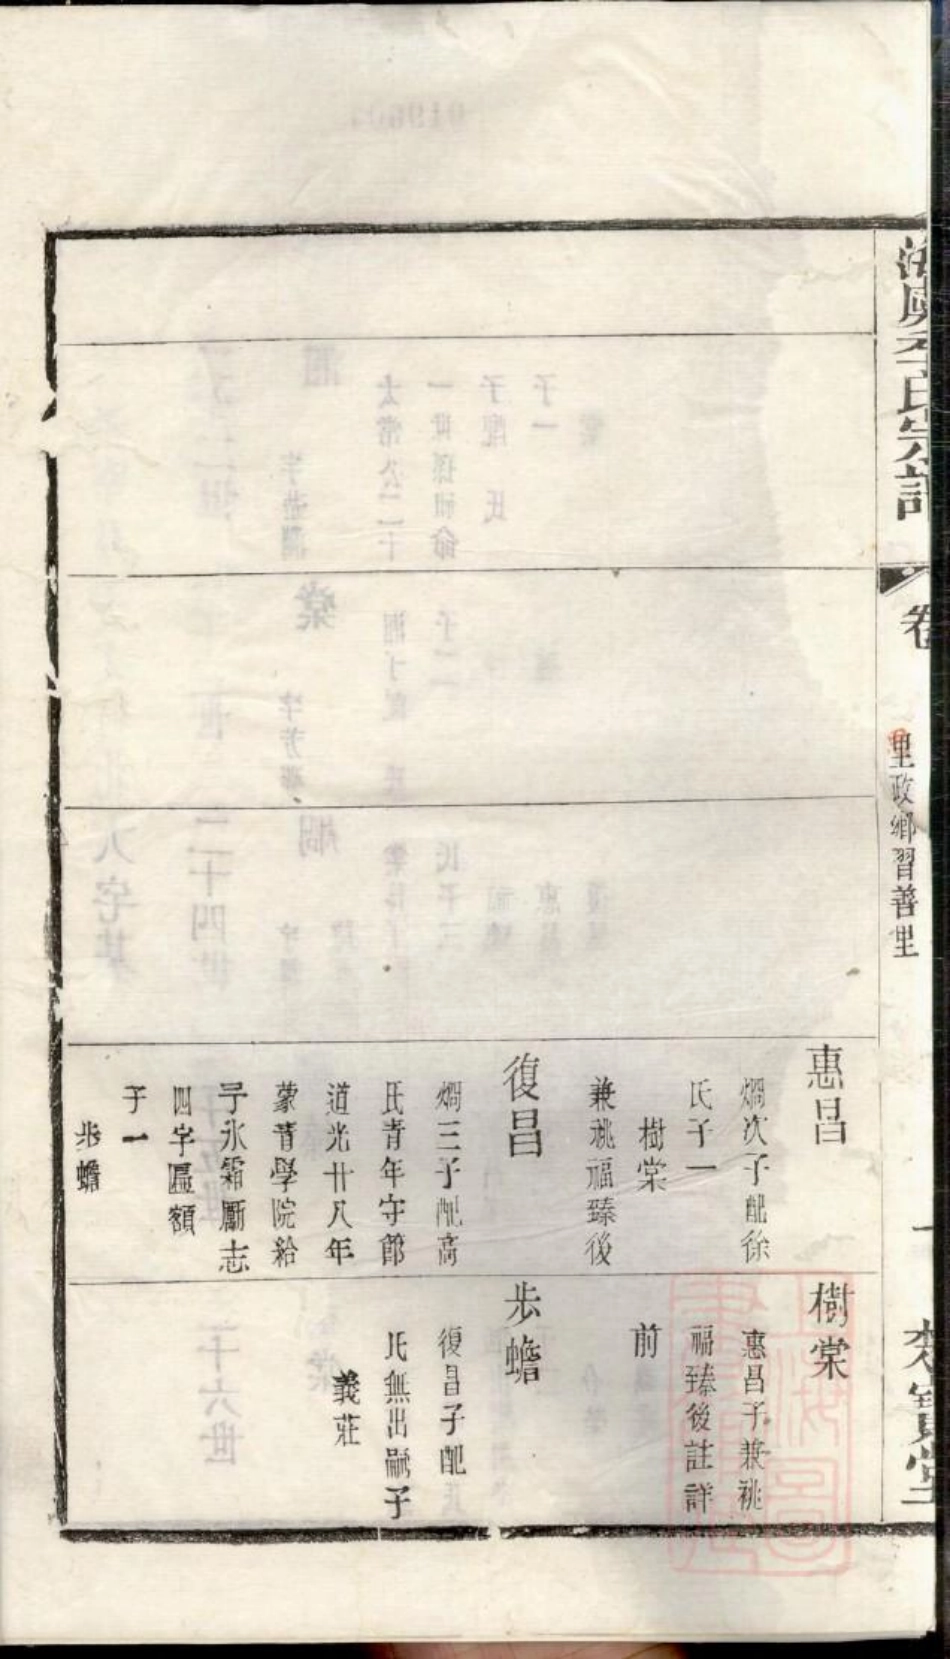 李氏宗譜
卷
里政鄉習善里
一
惠昌
燗次子配徐
氏子一
樹棠
兼祧福臻後
復昌
燗三子配高
氏青年守節
道光廿八年
蒙苖學院給
予氷霜厲志
四字匾額
子一
步蟾
樹棠
惠昌子兼祧
福臻後註詳
前
步蟾
復昌子配
氏無出嗣子
義莊